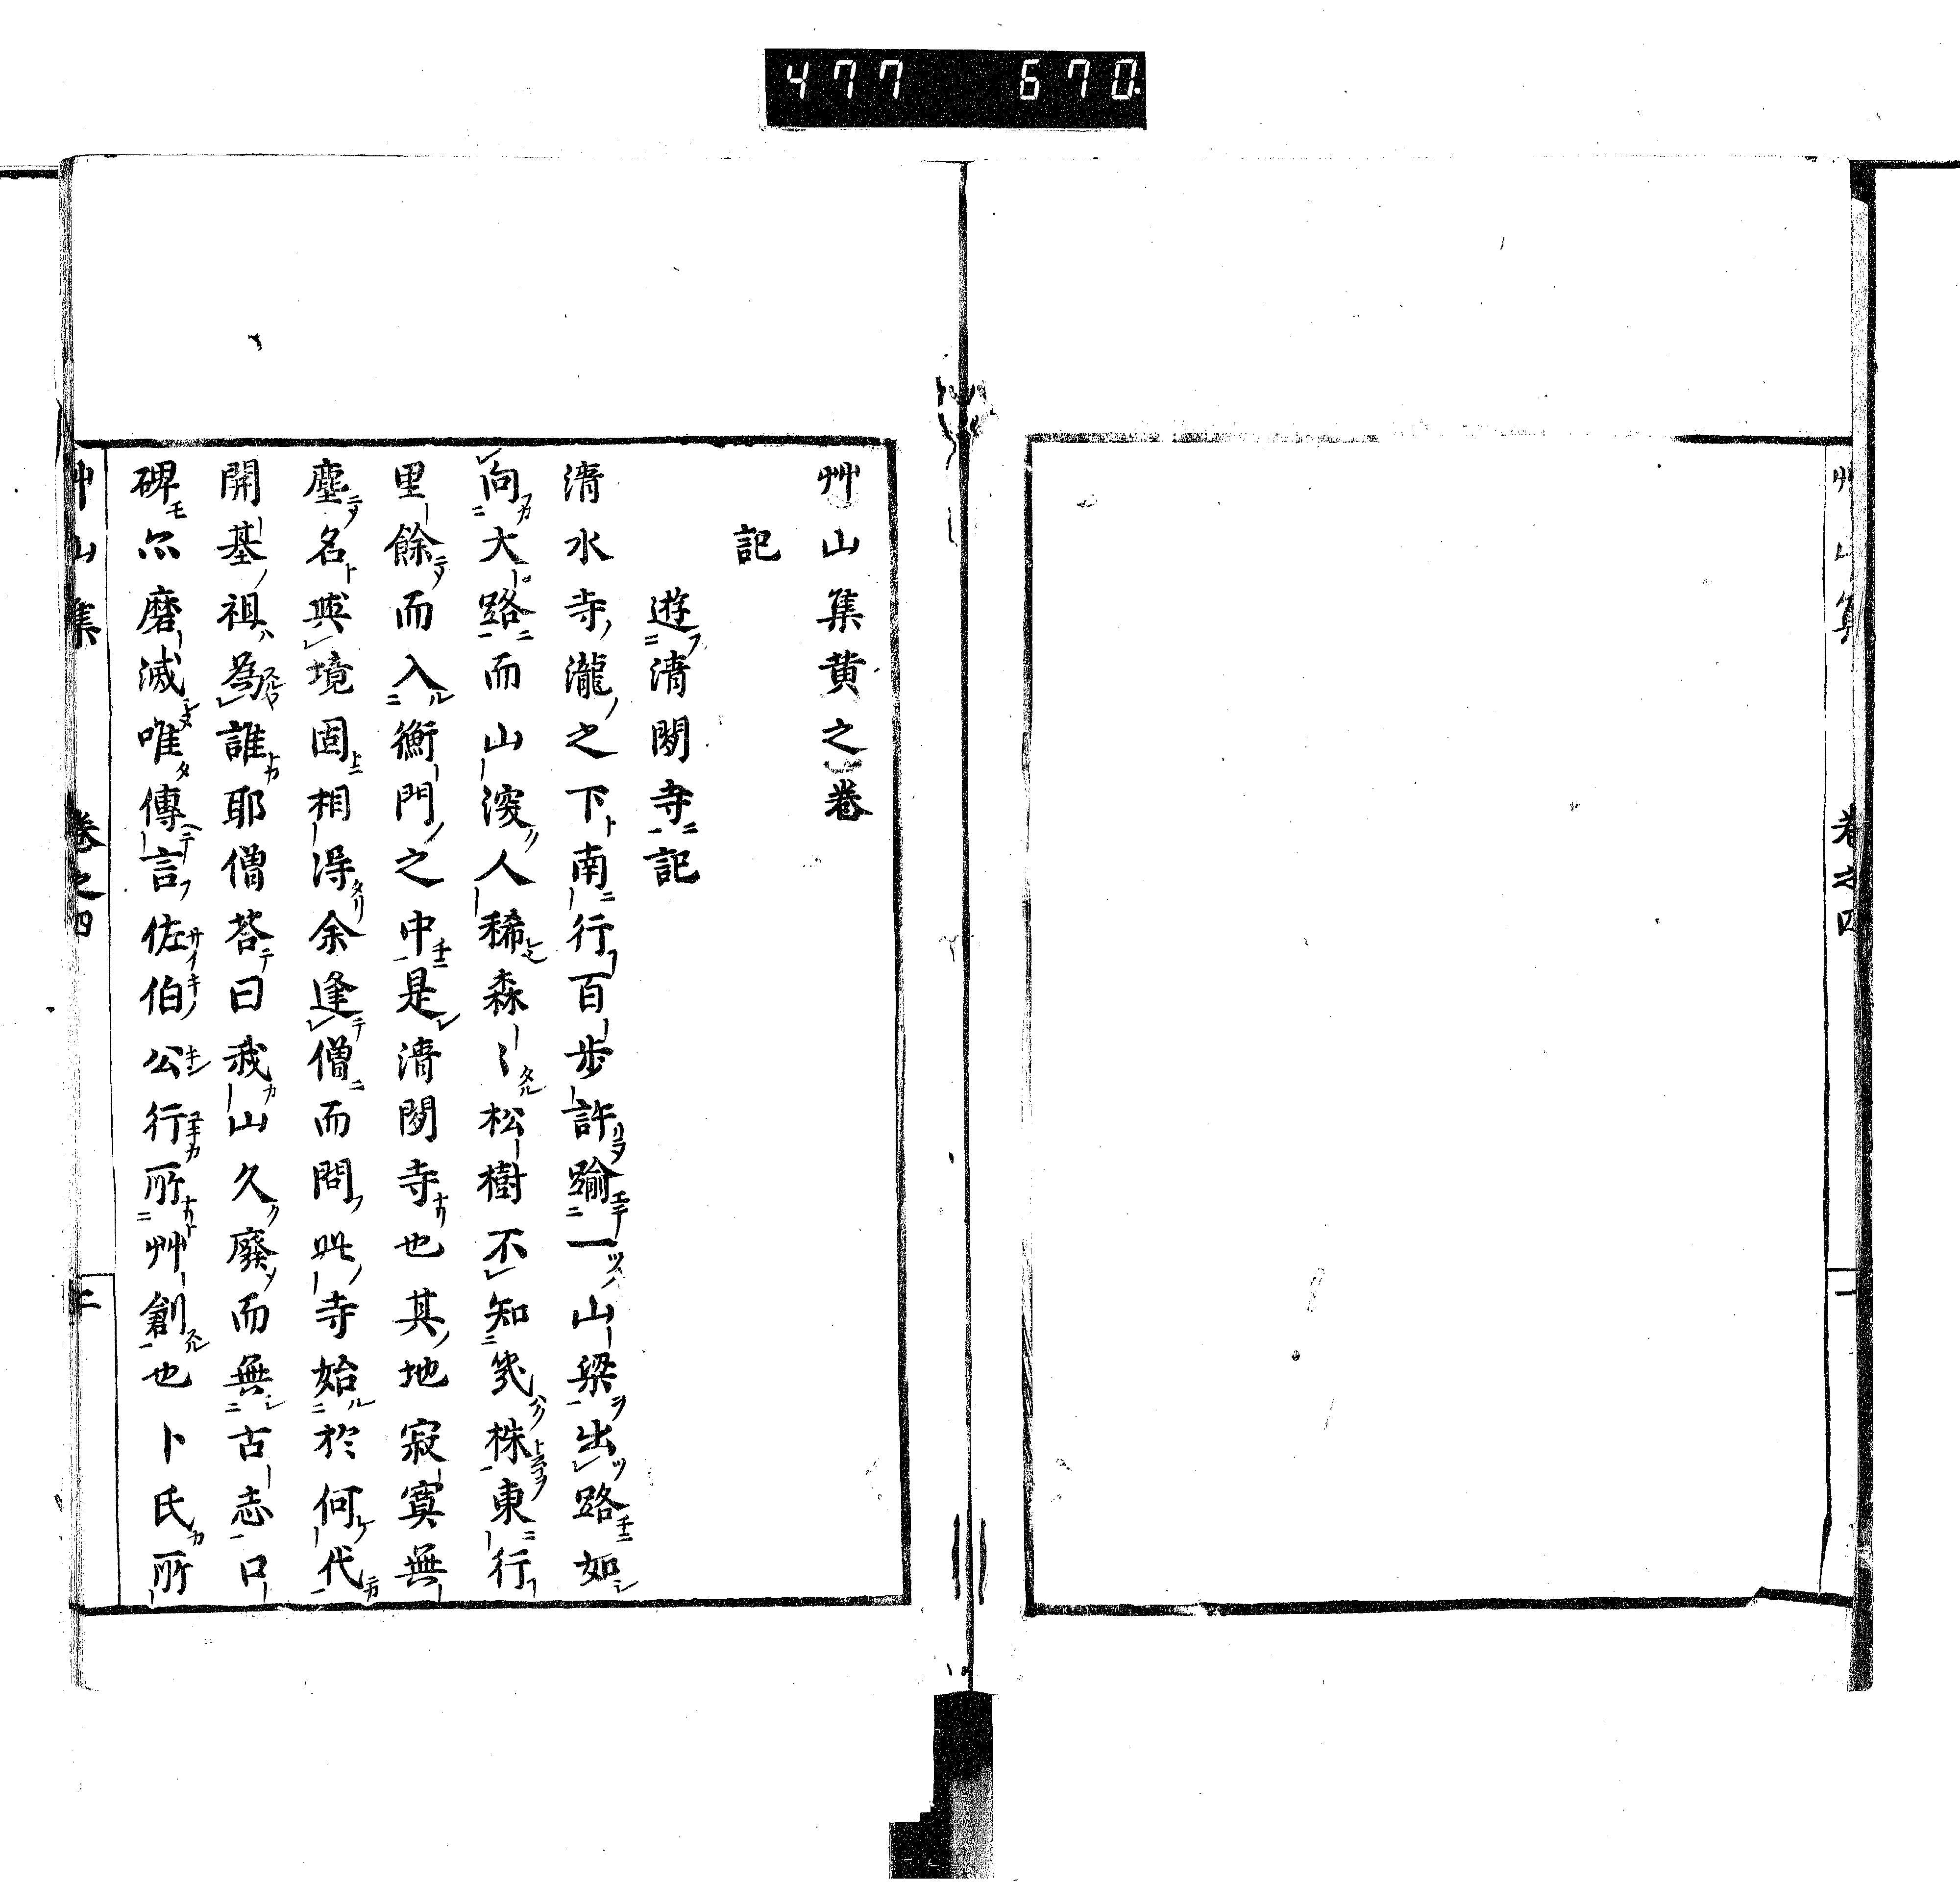 477 670
艸山集
卷之四
一
艸山集黄之卷
記
遊清閑寺記
清水寺瀧之下南行百步許踰一山梁出路如
向大路而山深人稀森〻松樹不知幾株東行
里餘而入衡門之中是清閑寺也其地寂寞無
塵名與境固相得余逢僧而問此寺始於何代
開基祖為誰耶僧荅曰我山久廢而無古志口
碑亦磨滅唯傳言佐伯公行所艸創也卜氏所
艸山集
卷之四
二